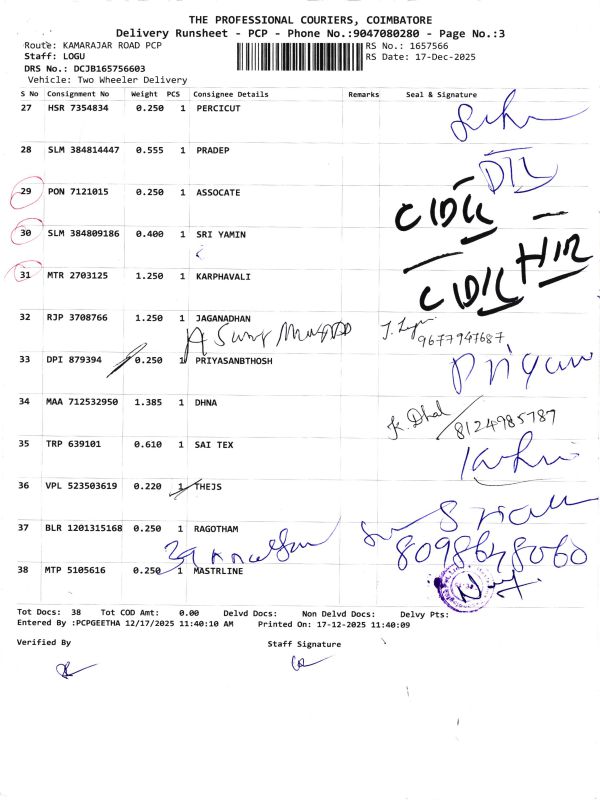 THE PROFESSIONAL COURIERS, COIMBATORE
Delivery Runsheet - PCP - Phone No.:9047080280 - Page No.:3
Route: KAMARAJAR ROAD PCP RS No.: 1657566
Staff: LOGU RS Date: 17-Dec-2025
DRS No.: DCJB165756603
Vehicle: Two Wheeler Delivery
S No Consignment No Weight PCS Consignee Details Remarks Seal & Signature
27 HSR 7354834 0.250 1 PERCICUT
28 SLM 384814447 0.555 1 PRADEP
29 PON 7121015 0.250 1 ASSOCATE
30 SLM 384809186 0.400 1 SRI YAMIN
31 MTR 2703125 1.250 1 KARPHAVALI
32 RJP 3708766 1.250 1 JAGANADHAN
9677947687
33 DPI 879394 0.250 1 PRIYASANBTHOSH Priyan
34 MAA 712532950 1.385 1 DHNA K. Dhal
8124985787
35 TRP 639101 0.610 1 SAI TEX
36 VPL 523503619 0.220 1 THEJS
37 BLR 1201315168 0.250 1 RAGOTHAM
8098648060
38 MTP 5105616 0.250 1 MASTRLINE
Tot Docs: 38 Tot COD Amt: 0.00 Delvd Docs: Non Delvd Docs: Delvy Pts:
Entered By :PCPGEETHA 12/17/2025 11:40:10 AM Printed On: 17-12-2025 11:40:09
Verified By Staff Signature